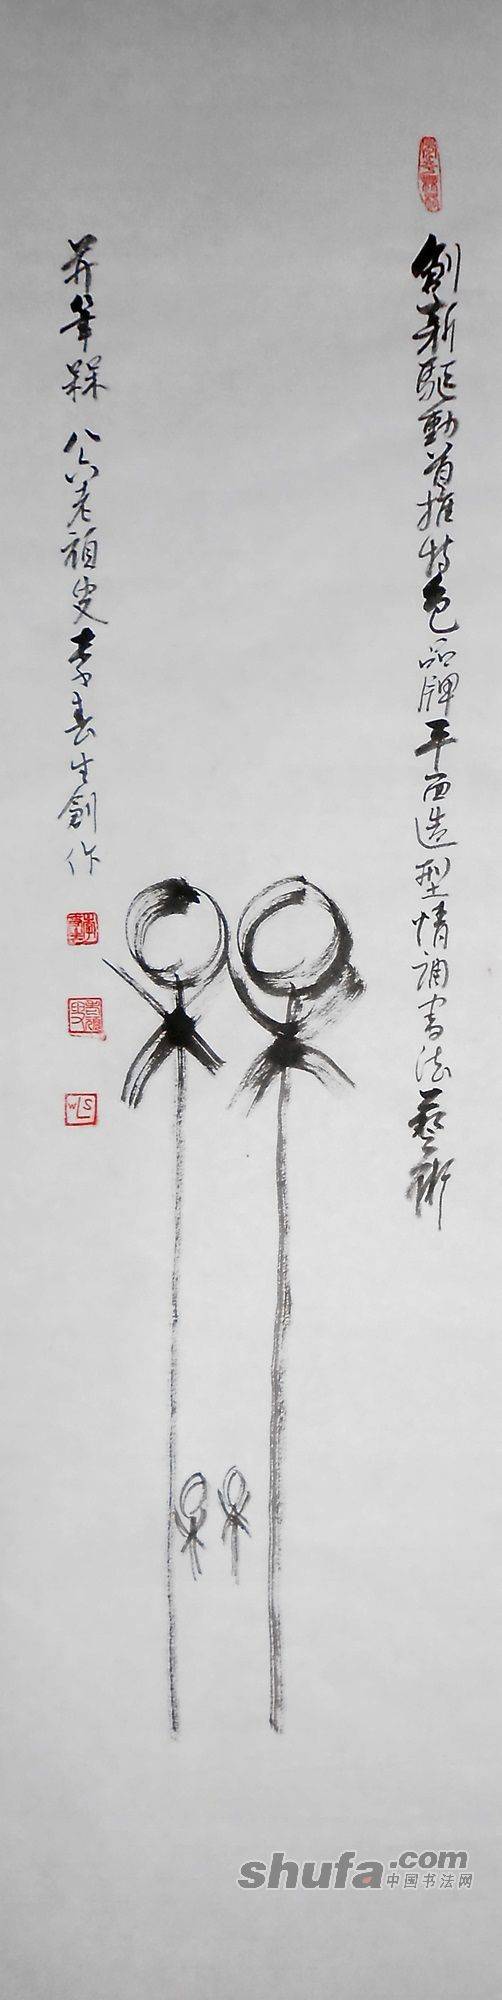 創新驅動首推特色品牌平面造型情調書法藝術
并筆槑 八六老頑叟李春生創作
WLS
shufa.com
中国书法网